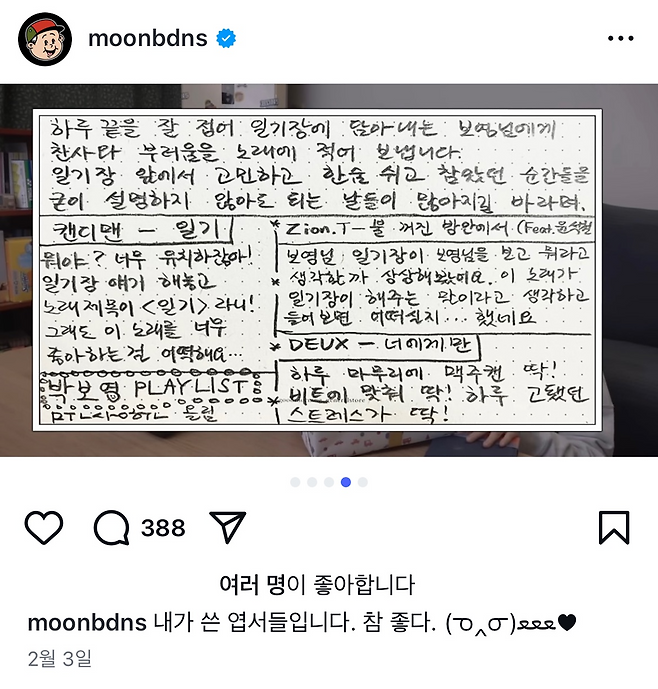 moonbdns
하루 끝을 잘 접어 일기장에 담아내는 보영님에게
찬사와 부러움을 노래에 적어 보냅니다.
일기장 앞에서 고민하고 한숨 쉬고 참았던 순간들을
굳이 설명하지 않아도 되는 날들이 많아지길 바라며.
캔디맨 - 일기
뭐야? 너무 유치하잖아!
일기장 얘기 해놓고
노래제목이 <일기> 라니!
그래도 이 노래를 너무
좋아하는걸 어떡해요…
박보영 PLAYLIST
올림
* Zion.T - 불 꺼진 방안에서 (Feat.윤석철
보영님 일기장이 보영님을 보고 뭐라고
* 생각할까 상상해봤어요. 이 노래가
일기장이 해주는 말이라고 생각하고
들어보면 어떠실지… 했네요
* DEUX - 너에게만
하루 마무리에 맥주캔 딱!
비트에 맞춰 딱! 하루 고됐던
스트레스가 딱!
388
여러 명이 좋아합니다
moonbdns 내가 쓴 엽서들입니다. 참 좋다. (ㅎ^ㅎ)ლლლ♥
2월 3일